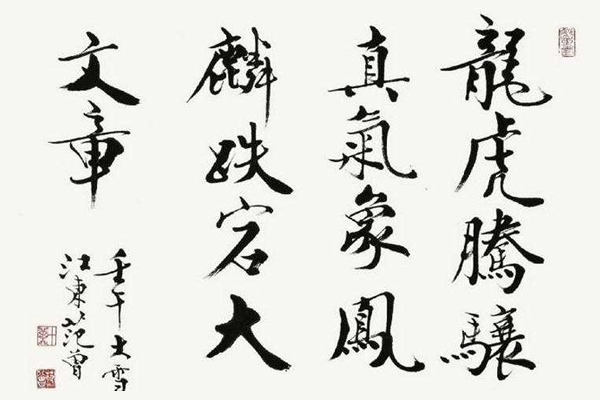 龍虎騰驤
真氣象鳳
麟跌宕大
文章
壬午大雪
江東范曾